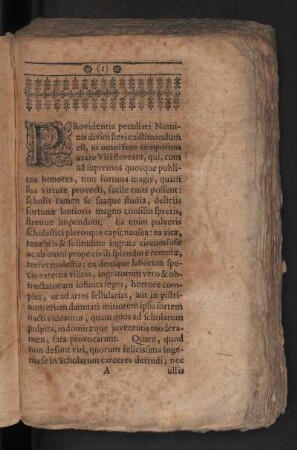 (1)
PRovidentia peculiari Numi-
nis divini fieri existimandum
est, ut omni fere temporum
ætate Viri floreant, qui, cum
ad supremos quosque publi-
cos honores, non fortuna magis, quam
sua virtute provecti, facile eniti possent:
scholis tamen se suaque studia, deliciis
fortunæ lautioris magno consilio spretis,
strenue impendunt. Ea enim pulveris
scholastici plerosque capit nausea: ea vitæ,
tenebris & solicitudine ingrata circumfusæ
ac ab omni prope civili splendore remotæ,
terret molestia: ea denique laborum spe-
cie externa vilitas, ingratorum vero & ob-
trectatorum infinita seges, horrore com-
plet, ut ad artes sellularias, aut in pistri-
num etiam damnati mitiorem ipsa sortem
nacti videantur, quam quos ad scholarum
pulpita, indomitæque juventutis modera-
men, fata provocarunt. Quare, quod
non desint viri, quorum felicissima inge-
nia se in Scholarum carceres detrudi, nec
A ullis